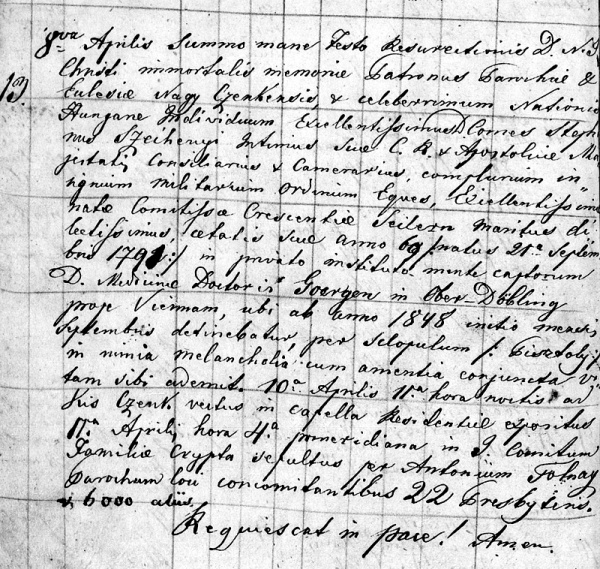 8va Aprilis Summo mane Festo Resurectionis D. N. J.
13. Christi immortalis memoriæ Patronus Parochiæ &
Eclesiæ Nagy Czenkensis & celeberrimum Nationis
Hungaræ Individuum Excellentissimus D Comes Stepha
nus Szechenyi Intimus Suæ C. R. & Apostolicæ Ma
jestatis Consiliarius & Camerarius, complurium in
signium militarium ordinum Eques, Excellentissimæ
natæ Comitissæ Crescentiæ Seilern maritus di
lectissimus, ætatis suæ anno 69 /natus 21a Septem
bris 1791:/ in privato instituto mente captorum
D. Medicinæ Doctoris Goergen in Ober-Döbling
prope Viennam, ubi ab anno 1848 initio mensis
septembris detinebatur, per sclopulum /: Pisztoly:/
in nimia melancholia cum amentia conjuncta vi
tam sibi ademit. 10a Aprilis 11a hora noctis ad
Kis Czenk vectus in capella Residentiæ expositus
17a Aprili hora 4a pomeridiana in J. Comitum
Familiæ Crypta sepultus per Antonium Tolnay
Parochum loci concomitantibus 22 Presbyteris.
& 6000 aliis
Requiescat in pace! Amen.